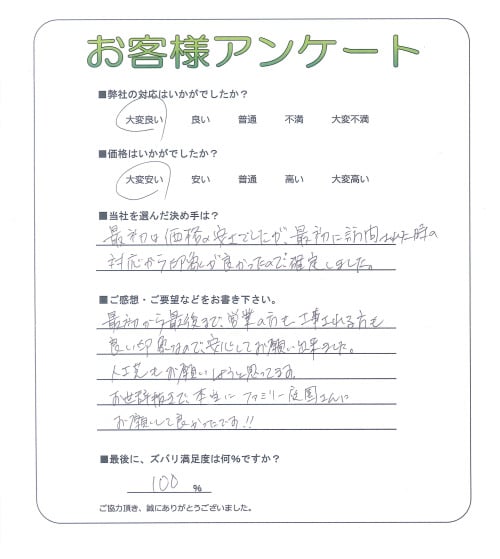 お客様アンケート
■弊社の対応はいかがでしたか？
大変良い 良い 普通 不満 大変不満
■価格はいかがでしたか？
大変安い 安い 普通 高い 大変高い
■当社を選んだ決め手は？
最初は価格の安さでしたが、最初に訪問された時の
対応から印象が良かったので確定しました。
■ご感想・ご要望などをお書き下さい。
最初から最後まで、営業の方も工事される方も
良い印象なので、安心してお願い出来ました。
人工芝もお願いしようと思ってます。
お世辞抜きで、本当にファミリー庭園さんに
お願いして良かったです!!
■最後に、ズバリ満足度は何％ですか？
100 %
ご協力頂き、誠にありがとうございました。